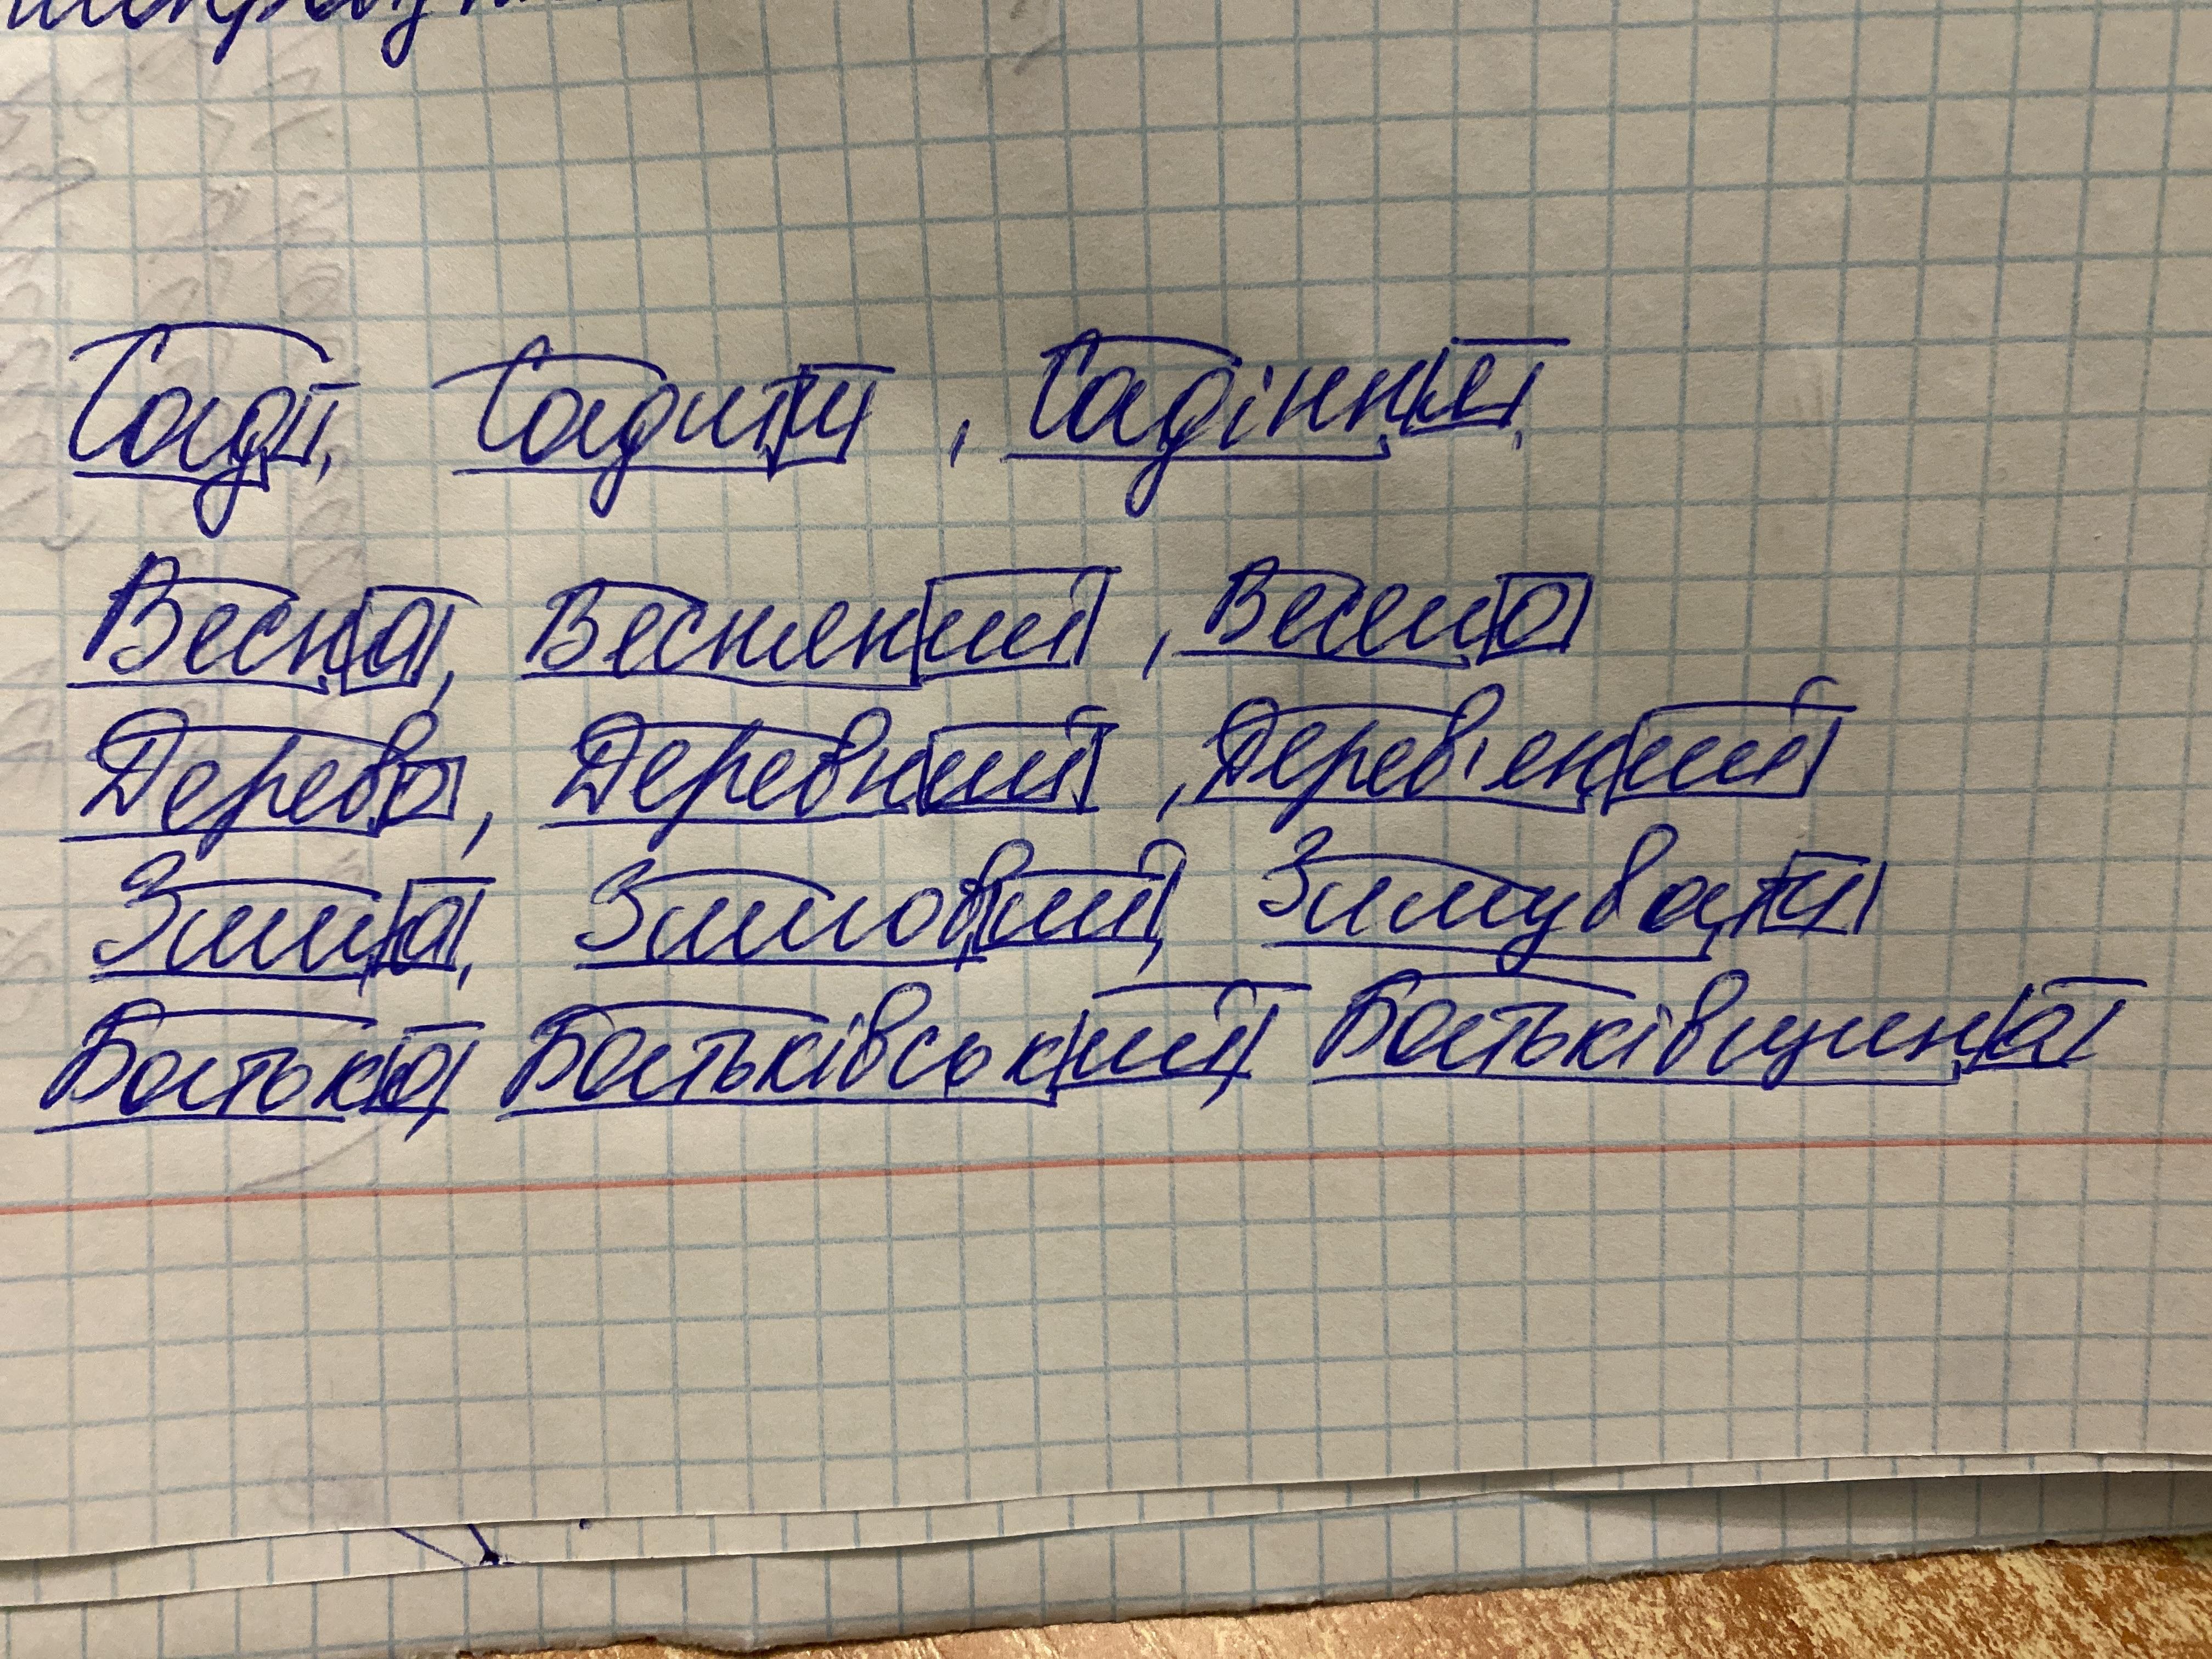 Сад, Садити, Садіння,
Весна, Веснянний, Весело
Дерево, Деревний, Дерев'яний
Зима, Зимовий, Зимувати
Батько, Батьківський, Батьківщина